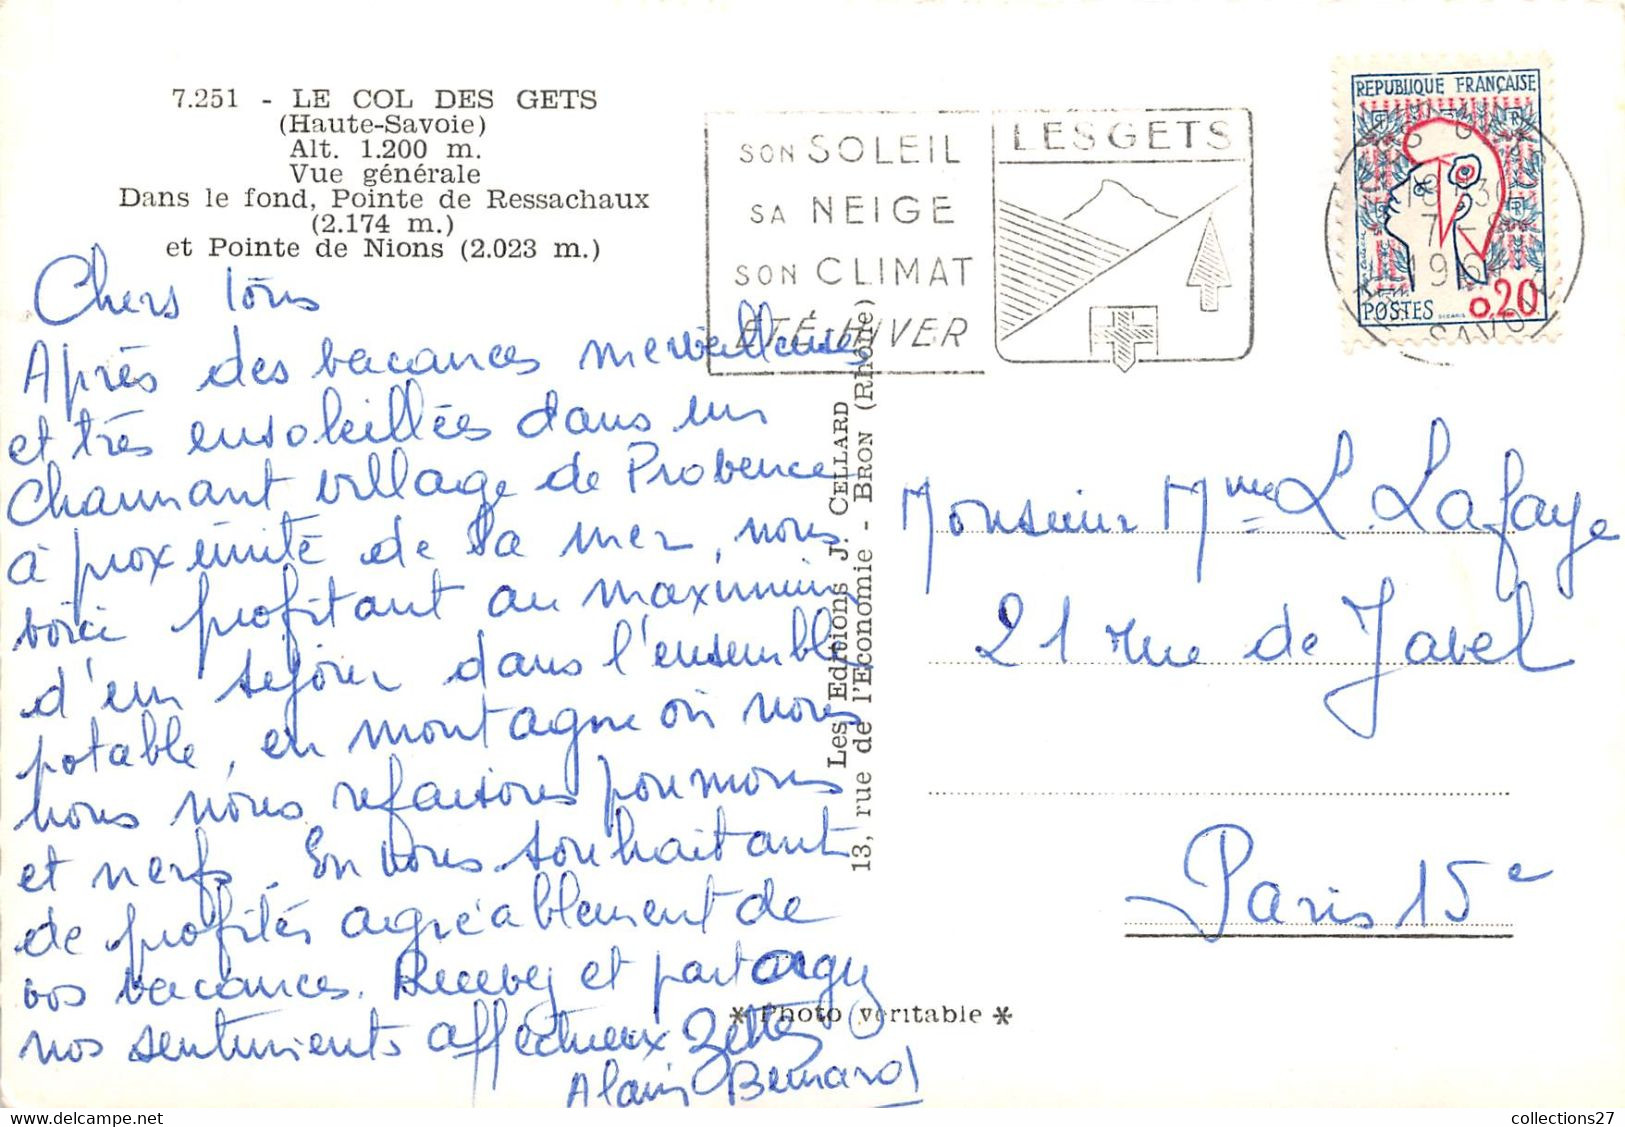 7.251 - LE COL DES GETS
(Haute-Savoie)
Alt. 1.200 m.
Vue générale
Dans le fond, Pointe de Ressachaux
(2.174 m.)
et Pointe de Nions (2.023 m.)
Chers tous
Après des vacances merveilleuses
et très ensoleillées dans un
charmant village de Provence
à proximité de la mer, nous
voici profitant au maximum
d'un séjour dans l'ensemble
potable, en montagne où nous
nous nous refaisons poumons
et nerfs. En vous souhaitant
de profités agréablement de
vos vacances. Recevez et partagez
nos sentiments affectueux
Alain Bernard
Les Editions J. CELLARD
13, rue de l'Economie - BRON (Rhône)
* Photo véritable *
SON SOLEIL
SA NEIGE
SON CLIMAT
ÉTÉ-HIVER
LES GETS
REPUBLIQUE FRANÇAISE
POSTES
0.20
18 H 30
7 - 8
196
SAVOIE
Monsieur Mme L. Lafaye
21 rue de Javel
Paris 15e
collections27